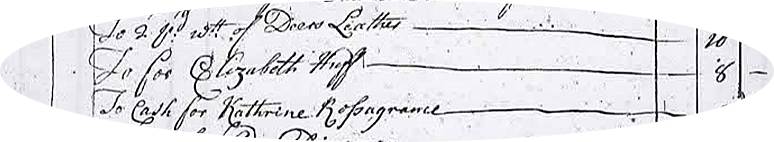 To 2 pd wtt of Deers Leather 10
To for Elizabeth Huff 8
To Cash for Kathrine Roſsagrance